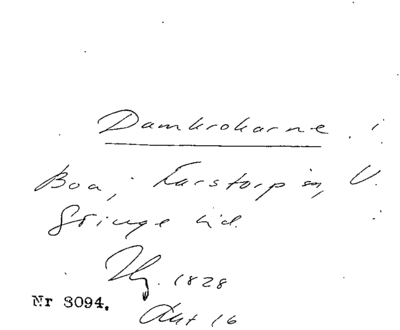 Damkrokarne i
Boa, Karstorp sn, V.
Göinge hd.
Hlg. 1828
Nr 3094.
Akt 16